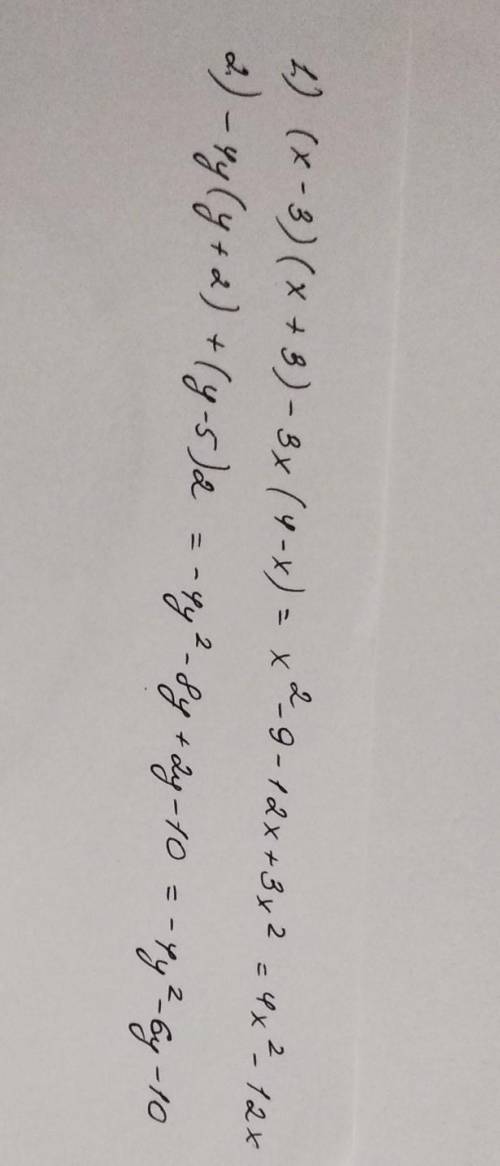 1.) (x-3)(x+3)-3x(4-x)=x²-9-12x+3x²=4x²-12x
2.) -4y(y+2)+(y-5)2=-4y²-8y+2y-10=-4y²-6y-10